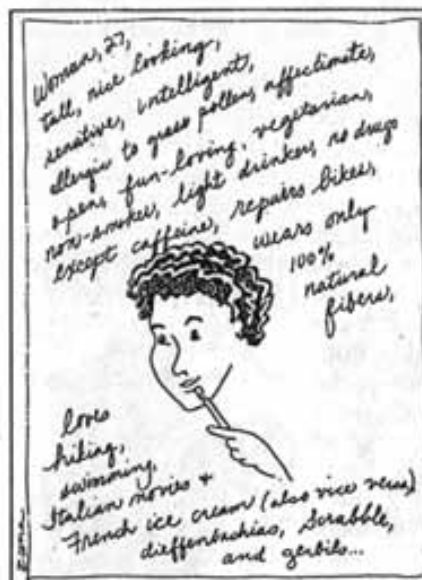 Woman, 27,
tall, nice looking,
sensitive, intelligent,
allergic to grass pollen, affectionate,
open, fun-loving, vegetarian,
non-smoker, light drinker, no drugs
except caffeine, repairs bikes,
wears only
100%
natural
fibers,
loves
hiking,
swimming,
Italian movies +
French ice cream (also vice versa)
dieffenbachias, Scrabble,
and gerbils...